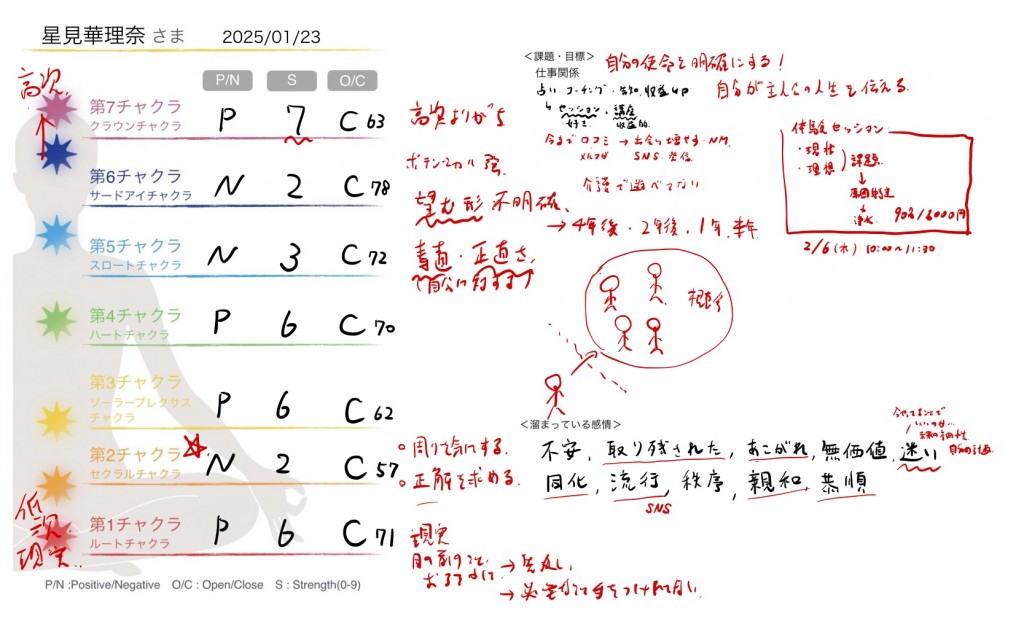 星見華理奈 さま 2025/01/23
P/N S O/C
高次
第7チャクラ
クラウンチャクラ
P 7 C 63
高次よりがち
第6チャクラ
サードアイチャクラ
N 2 C 78
ポテンシャル 強
望む形 不明確、
→ 4年後・2年後、1年、半年
第5チャクラ
スロートチャクラ
N 3 C 72
素直・正直さ、
第4チャクラ
ハートチャクラ
P 6 C 70
第3チャクラ
ソーラープレクサス
チャクラ
P 6 C 62
第2チャクラ
セクラルチャクラ
N 2 C 57
周りを気にする。
正解を求める。
低次
現実
第1チャクラ
ルートチャクラ
P 6 C 71
現実
目の前のこと
→ 先延し
→
P/N :Positive/Negative O/C : Open/Close S : Strength(0-9)
<課題・目標>
仕事関係
自分の使命を明確にする!
占い・コーチング・収益UP
自分が主人公の人生を伝える。
セッション・講座
好き 収益的
今まで口コミ → 出会い増やす・NM
メルマガ SNS・発信
体験セッション
・現状
・理想
課題
↓
原因特定
↓
浄化
90分/6000円
2/6 (木) 10:00~11:30
<溜まっている感情>
不安、取り残された、あこがれ、無価値、迷い
同化、流行、秩序、親和、恭順
SNS